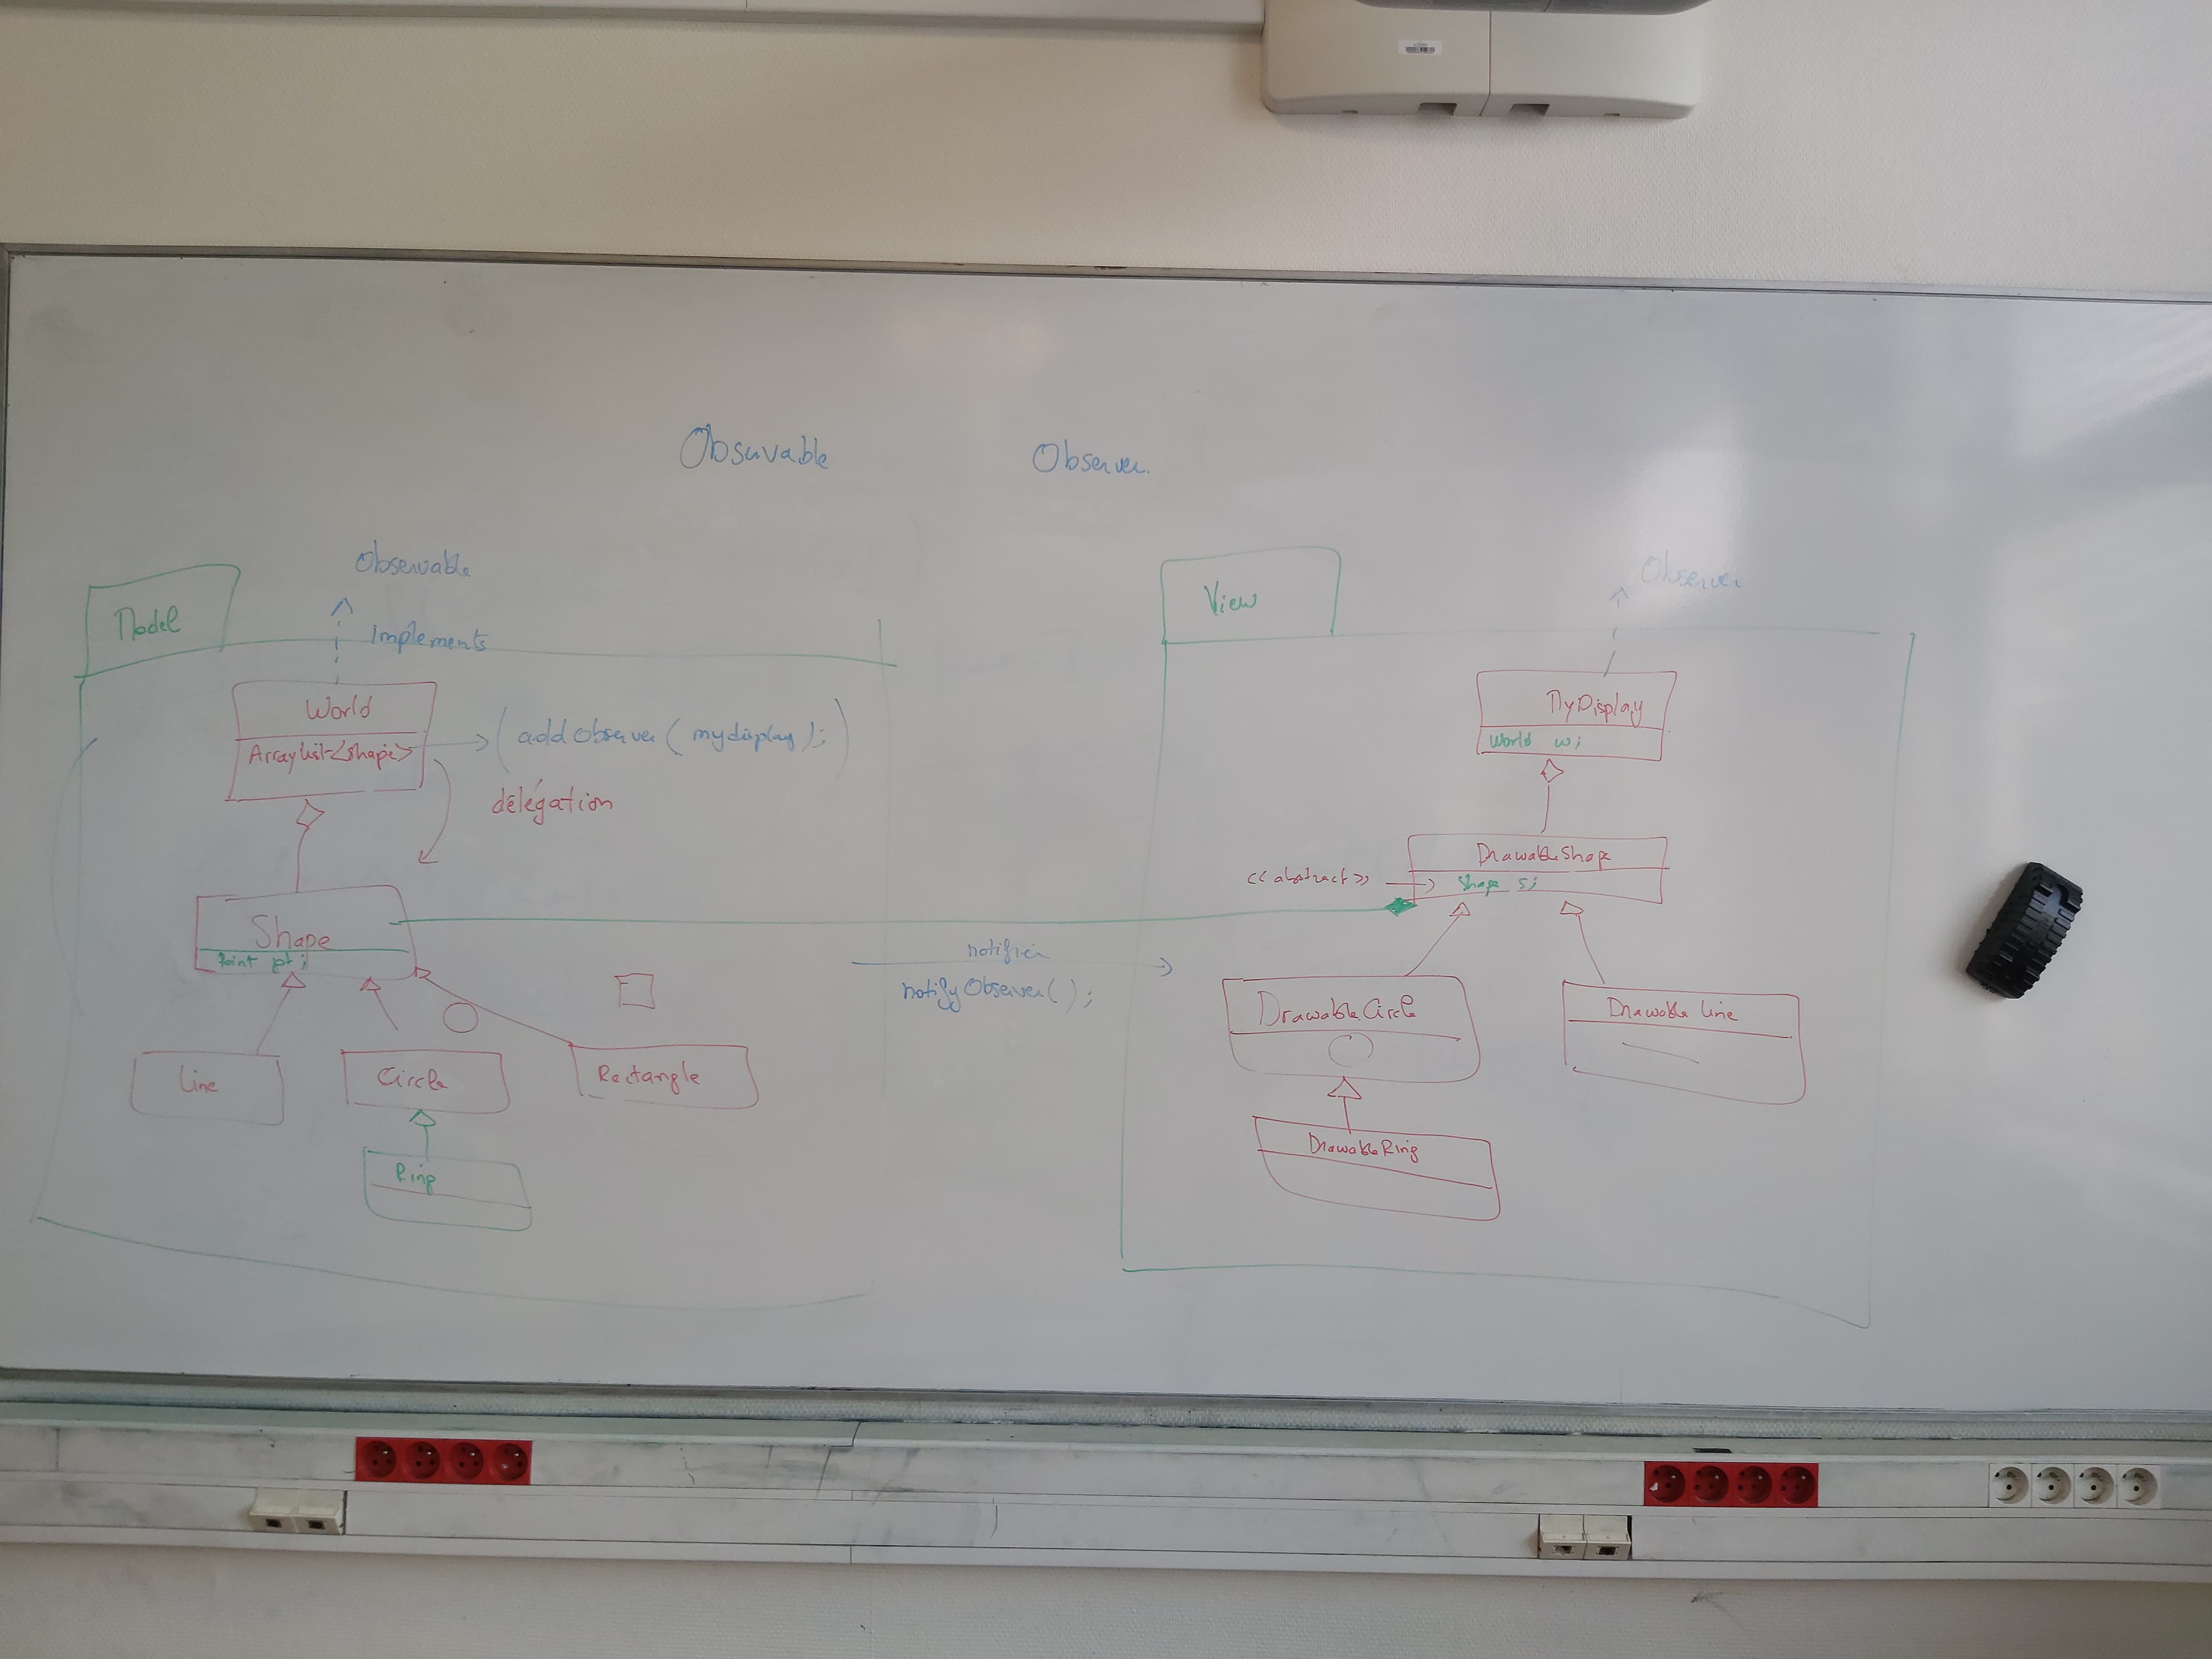 Observable
Observer.
Observable
implements
Model
World
ArrayList<Shape>
(addObserver(mydisplay);)
délégation
Shape
Point pt;
Line
Circle
Rectangle
Ring
notifier
notifyObserver();
View
Observer
MyDisplay
World w;
DrawableShape
<<abstract>>
Shape s;
DrawableCircle
Drawable Line
DrawableRing